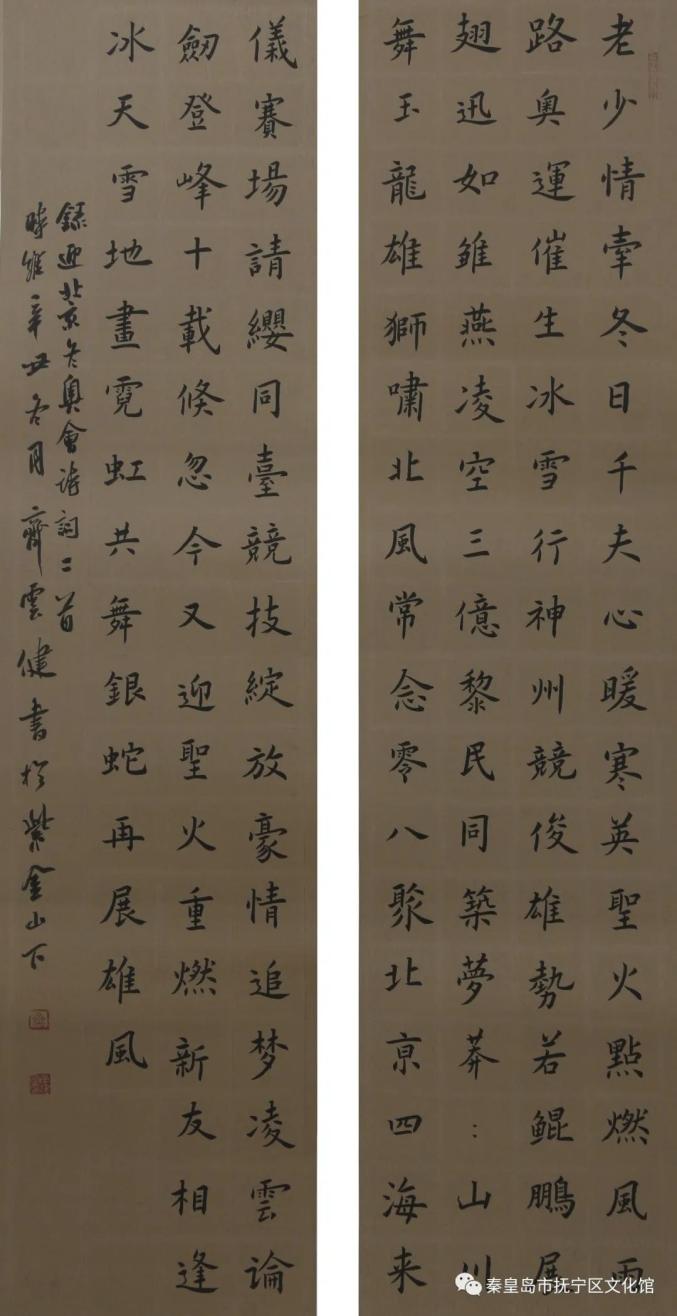 老少情牽冬日千夫心暖寒英聖火點燃風雨
路奧運催生冰雪行神州競俊雄勢若鯤鵬展
翅迅如雛燕凌空三億黎民同築夢莽:山川
舞玉龍雄獅嘯北風常念零八聚北京四海来
儀賽場請纓同臺競技綻放豪情追梦凌雲論
劒登峰十載倏忽今又迎聖火重燃新友相逢
冰天雪地畫霓虹共舞銀蛇再展雄風
録迎北京冬奥會詩詞二首
時維辛丑冬月齊雲健書於紫金山下
秦皇岛市抚宁区文化馆